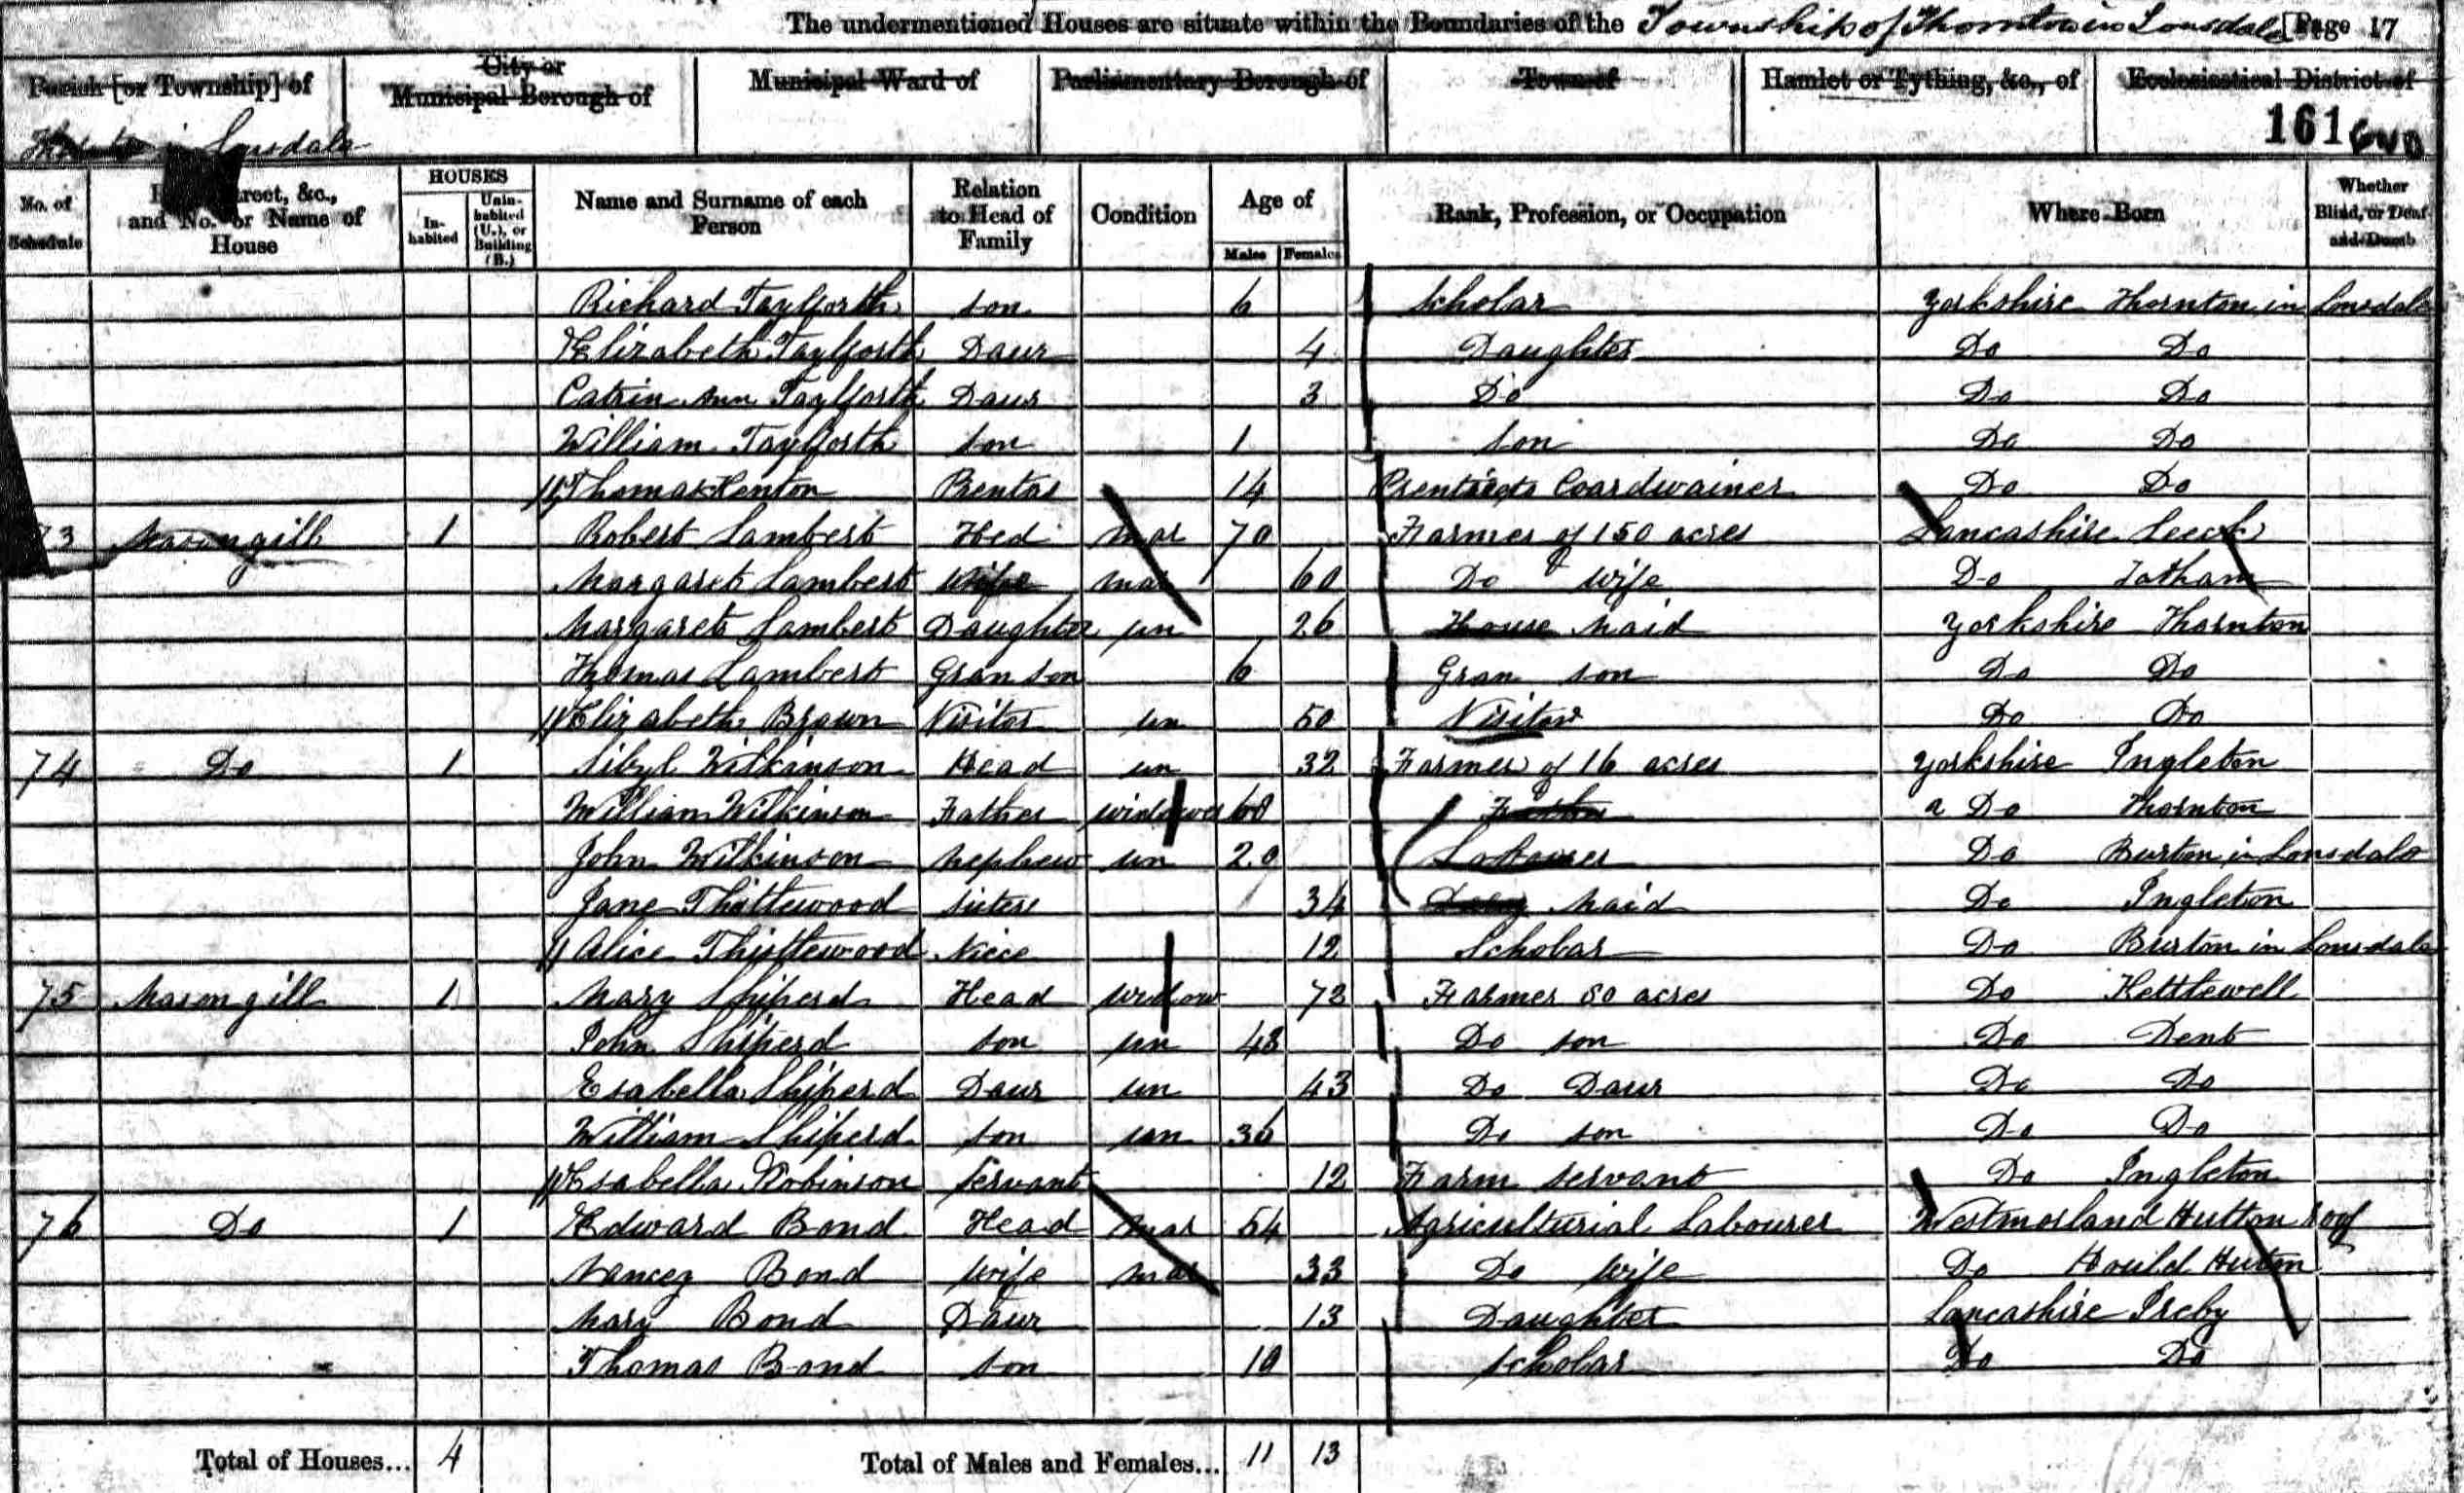 The undermentioned Houses are situate within the Boundaries of the Township of Thornton in Lonsdale [Page 17
Parish [or Township] of
City or Municipal Borough of
Municipal Ward of
Parliamentary Borough of
Town of
Hamlet or Tything, &c., of
Ecclesiastical District of
in Lonsdale
161
No. of Schedule
and No. or Name of House
HOUSES
Inhabited
Uninhabited (U.), or Building (B.)
Name and Surname of each Person
Relation to Head of Family
Condition
Age of
Males Females
Rank, Profession, or Occupation
Where Born
Whether Blind, or Deaf and Dumb
Richard Taylforth son 6 Scholar Yorkshire Thornton in Lonsdale
Elizabeth Taylforth Daur 4 Daughter Do Do
Catrin Ann Taylforth Daur 3 Do Do Do
William Taylforth son 1 son Do Do
Thomas Kenton 14 Coardwainer Do Do
73 Masongill 1 Robert Lambert Hed mar 70 Farmer of 150 acres Lancashire Leeck
Margaret Lambert Wife mar 60 Do wife Do Tatham
Margaret Lambert Daughter un 26 House Maid Yorkshire Thornton
Thomas Lambert Gran son 6 Gran son Do Do
Elizabeth Brown Visitor un 50 Visitor Do Do
74 Do 1 Sibyl Wilkinson Head un 32 Farmer of 16 acres Yorkshire Ingleton
William Wilkinson Father widower 60 Do Thornton
John Wilkinson nephew un 20 Labourer Do Burton in Lonsdale
Jane Thistlewood sister 34 Maid Do Ingleton
Alice Thistlewood Niece 12 Scholar Do Burton in Lonsdale
75 Masongill 1 Mary Shiperd Head widow 72 Farmer 80 acres Do Kettlewell
John Shiperd son un 48 Do son Do Dent
Esabella Shiperd Daur un 43 Do Daur Do Do
William Shiperd son un 36 Do son Do Do
Esabella Robinson Servant 12 Farm servant Do Ingleton
76 Do 1 Edward Bond Head mar 54 Agriculturial Labourer Westmorland Hutton roof
Nancey Bond wife mar 33 Do wife Do Hould Huton
Mary Bond Daur 13 Daughter Lancashire Ireby
Thomas Bond son 10 Scholar Do Do
Total of Houses... 4 Total of Males and Females... 11 13